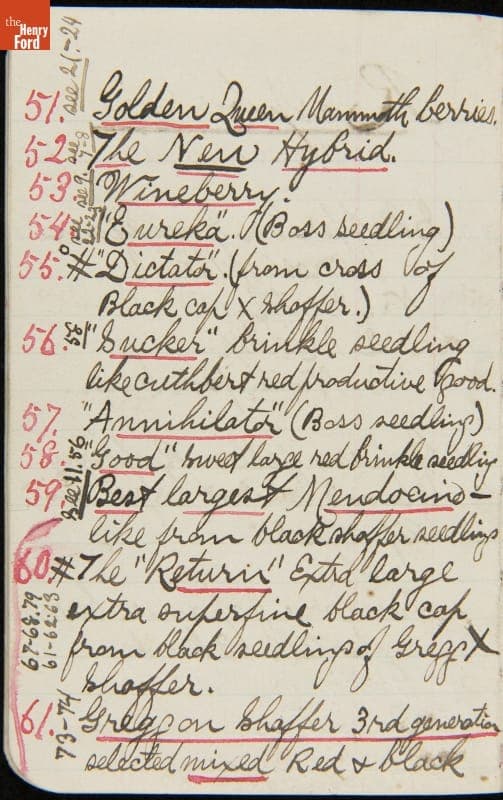 the
Henry
Ford
see 21.-24
51. Golden Queen Mammoth berries.
52. see 7-8 The New Hybrid.
53. see 9. Wineberry.
54. see 22-23 "Eureka". (Boss seedling)
55. # "Dictator". (from cross of
Black cap X Shaffer.)
56. 58 "Sucker" brinkle seedling
like cuthbert red productive good.
57. "Annihilator" (Boss seedling)
58. "Good" sweet large red brinkle seedling
59. See 11. 56 Best largest Mendocino-
like from black shaffer seedlings
60. # The "Return" Extra large
67-68.79
61-62.63
extra superfine black cap
from black seedlings of Gregg X
Shaffer.
61. Gregg on Shaffer 3rd generation
73-74
selected mixed Red & black